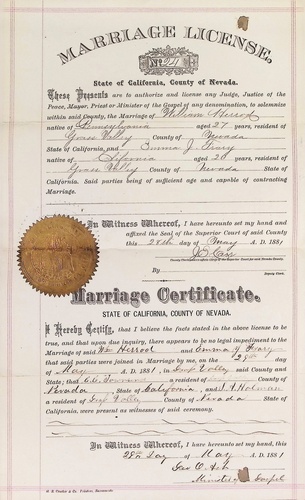 MARRIAGE LICENSE,
No 24
State of California, County of Nevada.
These Presents are to authorize and license any Judge, Justice of the
Peace, Mayor, Priest or Minister of the Gospel of any denomination, to solemnize
within said County, the Marriage of William Herrod
native of Pennsylvania aged 27 years, resident of
Grass Valley County of Nevada
State of California, and Emma J.
native of California aged 20 years, resident of
Grass Valley County of Nevada
State of California. Said parties being of sufficient age and capable of contracting
Marriage.
In Witness Whereof, I have hereunto set my hand and
affixed the Seal of the Superior Court of said County
this 28th day of May A. D. 1881
By
Deputy Clerk.
Marriage Certificate.
STATE OF CALIFORNIA, COUNTY OF NEVADA.
I Hereby Certify, that I believe the facts stated in the above license to be
true, and that upon due inquiry, there appears to be no legal impediment to the
Marriage of said Wm Herrod and Emma
that said parties were joined in Marriage by me, on the 28th day
of May A. D. 1881, in Grass Valley said County and
State; that a resident of
Nevada State of California, and Holman
a resident of Grass Valley County of Nevada State of
California, were present as witnesses of said ceremony.
In Witness Whereof, I have hereunto set my hand this
28th day of May A. D. 1881
Geo O. Ash
Minister of Gospel